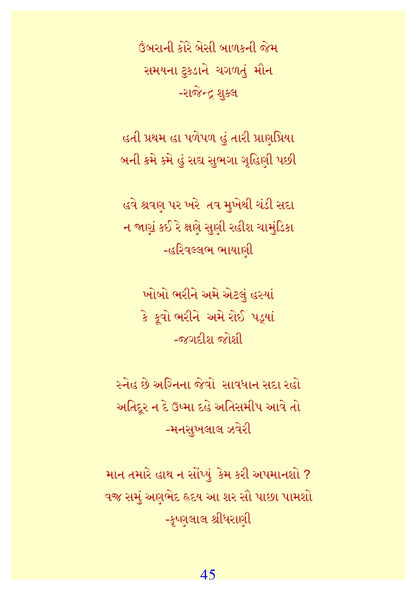 ઉંબરાની કોરે બેસી બાળકની જેમ
સમયના ટુકડાને ચગળતું મૌન
-રાજેન્દ્ર શુક્લ
હતી પ્રથમ હા પળેપળ હું તારી પ્રાણપ્રિયા
બની ક્રમે ક્રમે હું સદ્ય સુભગા ગૃહિણી પછી
હવે શ્રવણ પર ખરે તવ મુખેથી ચંડી સદા
ન જાણું કઈ રે ક્ષણે સુણી રહીશ ચામુંડિકા
-હરિવલ્લભ ભાયાણી
ખોબો ભરીને અમે એટલું હસ્યાં
કે કૂવો ભરીને અમે રોઈ પડ્યાં
-જગદીશ જોશી
સ્નેહ છે અગ્નિના જેવો સાવધાન સદા રહો
અતિદૂર ન દે ઉષ્મા દહે અતિસમીપ આવે તો
-મનસુખલાલ ઝવેરી
માન તમારે હાથ ન સોંપ્યું કેમ કરી અપમાનશો ?
વજ્ર સમું અણભેદ હૃદય આ શર સૌ પાછા પામશો
-કૃષ્ણલાલ શ્રીધરાણી
45